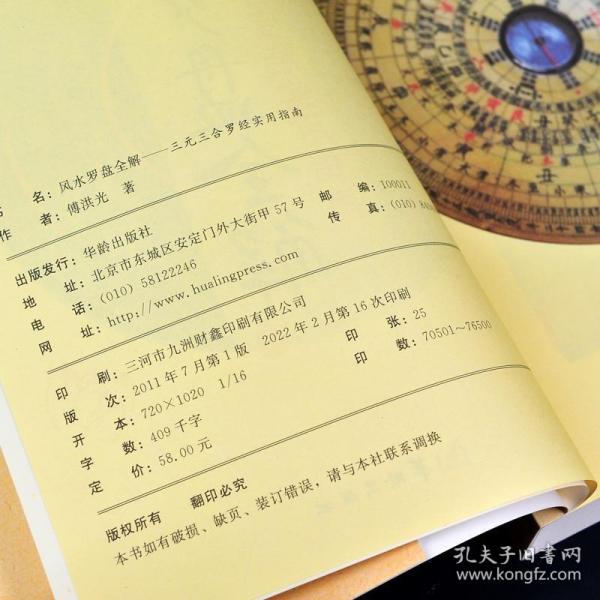 书 名：风水罗盘全解——三元三合罗经实用指南
作 者：傅洪光 著
出版发行：华龄出版社
地 址：北京市东城区安定门外大街甲57号 邮 编：100011
电 话：(010) 58122246 传 真：(010)
网 址：http://www.hualingpress.com
印 刷：三河市九洲财鑫印刷有限公司
版 次：2011年7月第1版 2022年2月第16次印刷
开 本：720×1020 1/16 印 张：25
字 数：409千字 印 数：70501～76500
定 价：58.00元
版权所有 翻印必究
本书如有破损、缺页、装订错误，请与本社联系调换
孔夫子旧书网
www.kongfz.com